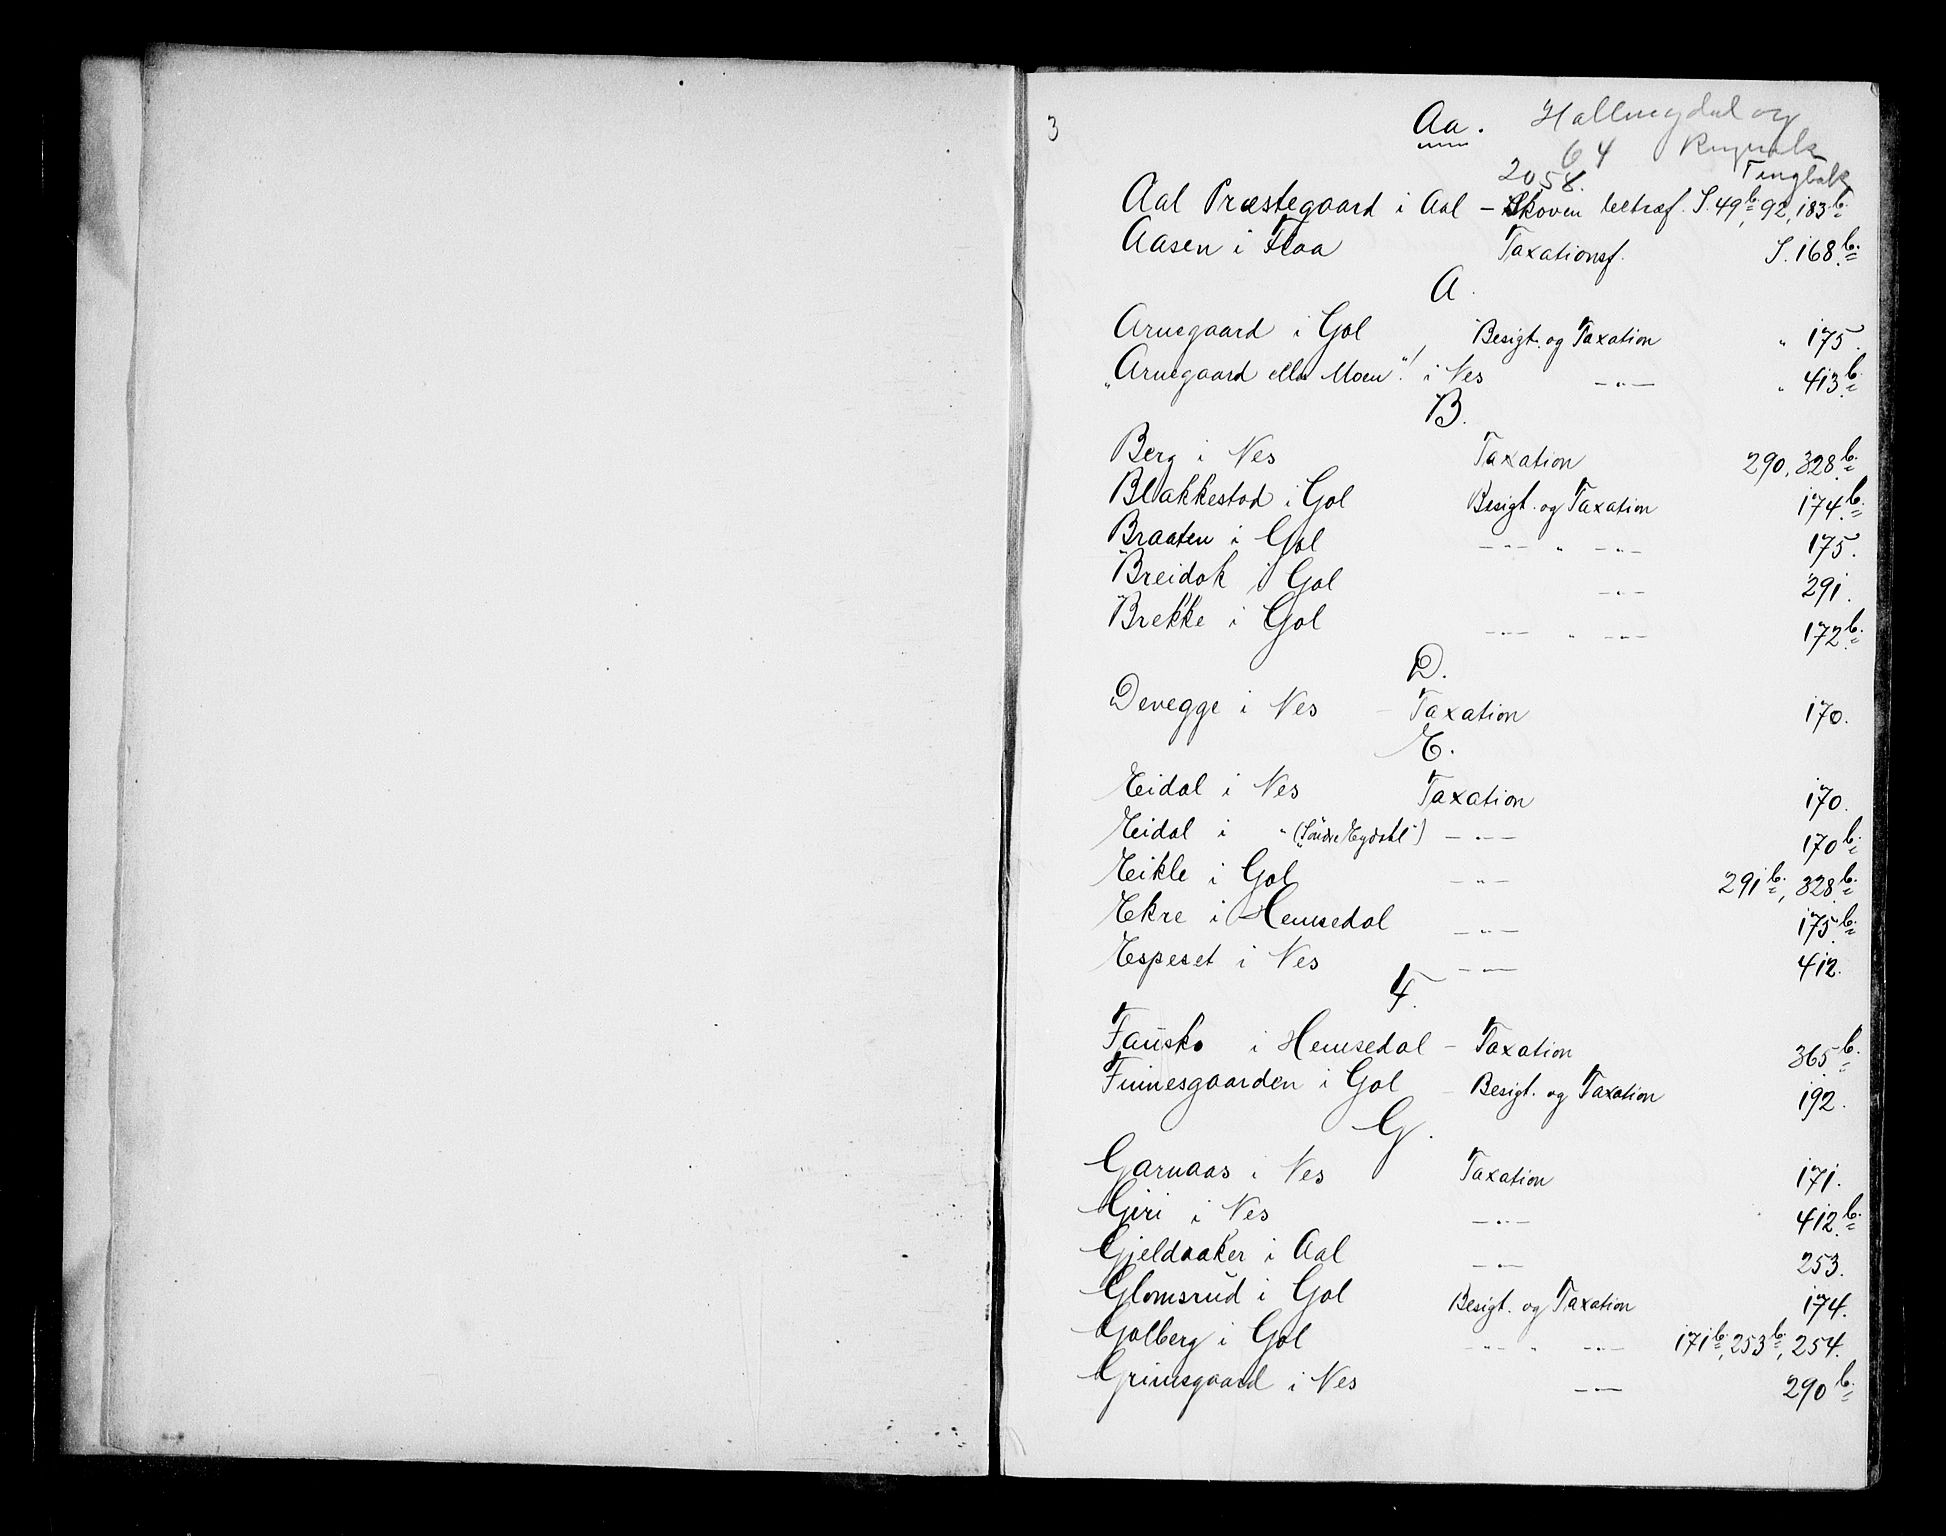 3
Aa. Hallingdal og
64 Ringerike
2058. Tingbok
Aal Præstegaard i Aal – Skoven betræf. S. 49 b., 92, 183 b.
Aasen i Flaa Taxationsf. S. 168 b.
A.
Arnegaard i Gol Besigt. og Taxation " 175.
"Arnegaard eller Moen"! i Nes —"— " 413 b.
B.
Berg i Nes Taxation 290, 328 b.
Blakkestad i Gol Besigt. og Taxation 174 b.
Braaten i Gol —"— " —"— 175.
Breidok i Gol —"— 291.
Brekke i Gol —"— " —"— 172 b.
D.
Devegge i Nes – Taxation 170.
E.
Eidal i Nes Taxation 170.
Eidal i " ("Søndre Eydahl") —"— 170 b.
Eikle i Gol —"— 291 b., 328 b.
Ekre i Hemsedal —"— 175 b.
Espeset i Nes —"— 412.
F.
Fausko i Hemsedal – Taxation 365 b.
Finnesgaarden i Gol – Besigt. og Taxation 192.
G.
Garnaas i Nes Taxation 171.
Giri i Nes —"— 412 b.
Gjeldaaker i Aal —"— 253.
Glomsrud i Gol Besigt. og Taxation 174.
Golberg i Gol —"— " —"— 171 b., 253 b., 254.
Grimsgaard i Nes —"— 290 b.